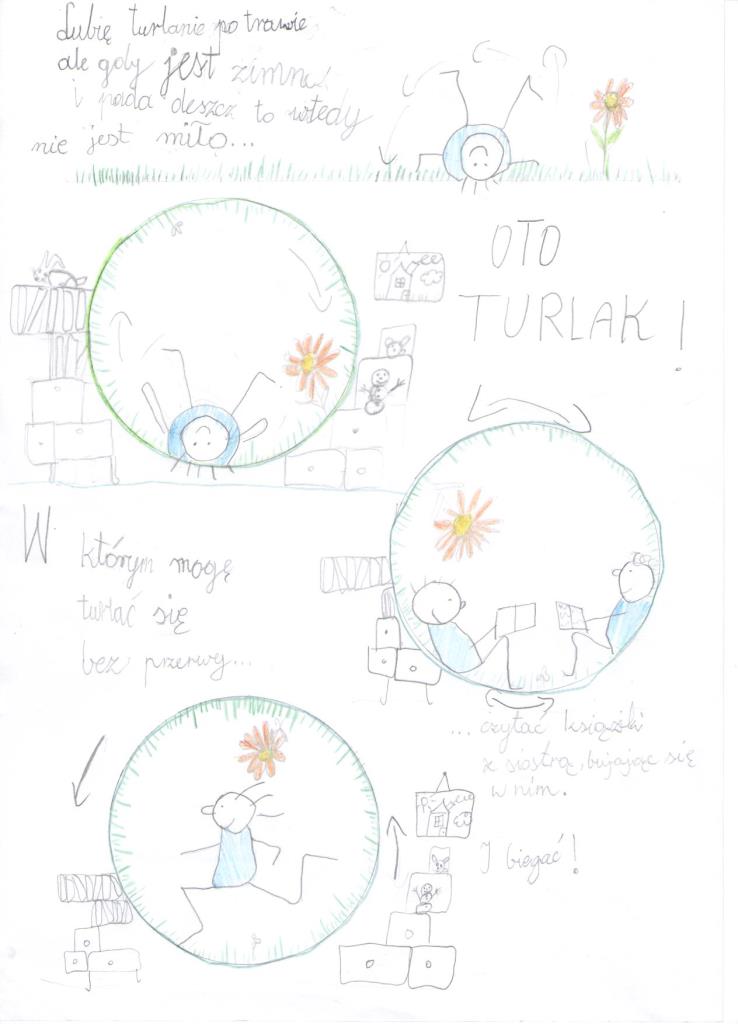 Lubię turlanie po trawie,
ale gdy jest zimno
i pada deszcz to wtedy
nie jest miło...
OTO
TURLAK!
W którym mogę
turlać się
bez przerwy...
... czytać książki
z siostrą, bujając się
w nim.
I biegać!